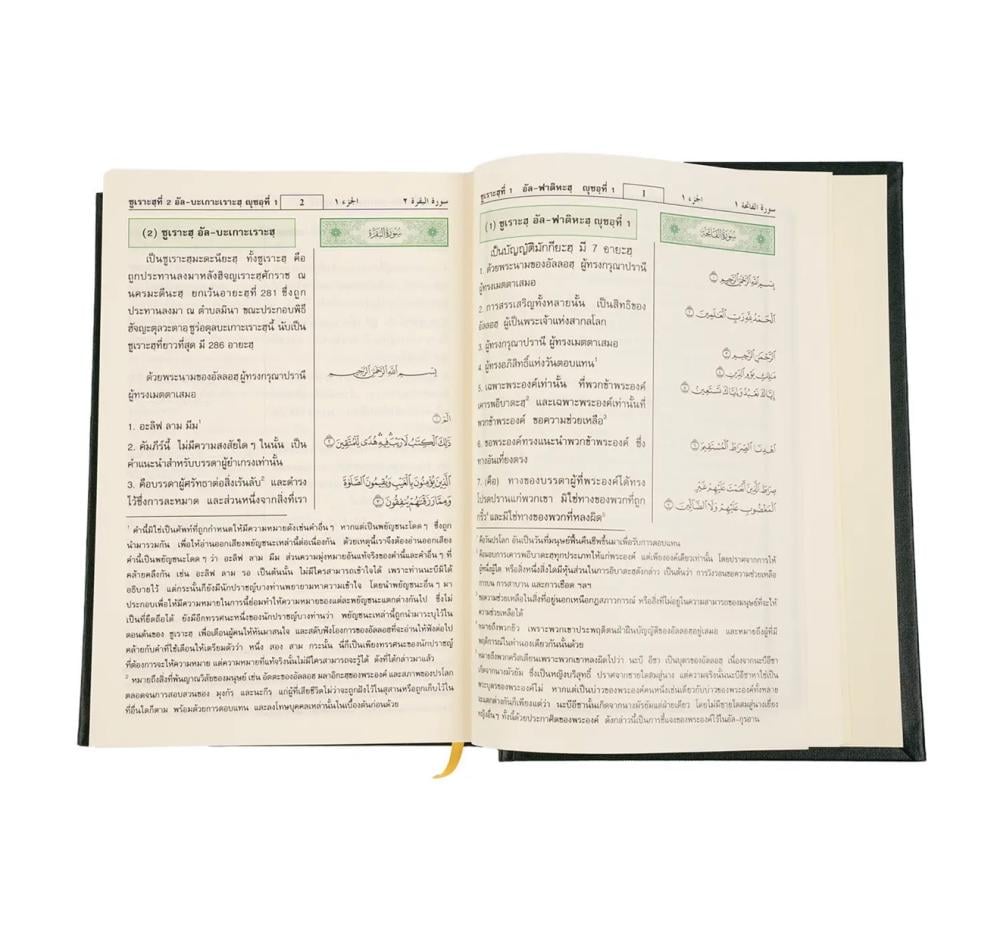 ซูเราะฮฺที่ 1 อัล-ฟาติหะฮฺ ญุซอฺที่ 1
1
الجزء ١
سورة الفاتحة ١
(1) ซูเราะฮฺ อัล-ฟาติหะฮฺ ญุซอฺที่ 1
سورة الفاتحة
เป็นบัญญัติมักกียะฮฺ มี 7 อายะฮฺ
1. ด้วยพระนามของอัลลอฮฺ ผู้ทรงกรุณาปรานี
ผู้ทรงเมตตาเสมอ
2. การสรรเสริญทั้งหลายนั้น เป็นสิทธิของ
อัลลอฮฺ ผู้เป็นพระเจ้าแห่งสากลโลก
3. ผู้ทรงกรุณาปรานี ผู้ทรงเมตตาเสมอ
4. ผู้ทรงอภิสิทธิ์แห่งวันตอบแทน¹
5. เฉพาะพระองค์เท่านั้น ที่พวกข้าพระองค์
เคารพอิบาดะฮฺ² และเฉพาะพระองค์เท่านั้นที่
พวกข้าพระองค์ ขอความช่วยเหลือ³
6. ขอพระองค์ทรงแนะนำพวกข้าพระองค์ ซึ่ง
ทางอันเที่ยงตรง
7. (คือ) ทางของบรรดาผู้ที่พระองค์ได้ทรง
โปรดปรานแก่พวกเขา มิใช่ทางของพวกที่ถูก
กริ้ว⁴ และมิใช่ทางของพวกที่หลงผิด⁵
بسم الله الرحمن الرحيم ١
الحمد لله رب العلمين ٢
الرحمن الرحيم ٣
ملك يوم الدين ٤
إياك نعبد وإياك نستعين ٥
اهدنا الصرط المستقيم ٦
صرط الذين أنعمت عليهم غير
المغضوب عليهم ولا الضالين ٧
คือวันปรโลก อันเป็นวันที่มนุษย์ฟื้นคืนชีพขึ้นมาเพื่อรับการตอบแทน
คือมอบการเคารพอิบาดะฮฺทุกประเภทให้แก่พระองค์ แต่เพียงองค์เดียวเท่านั้น โดยปราศจากการให้
ผู้หนึ่งผู้ใด หรือสิ่งหนึ่งสิ่งใดมีหุ้นส่วนในการอิบาดะฮฺดังกล่าว เป็นต้นว่า การวิงวอนขอความช่วยเหลือ
การบน การสาบาน และการเชือด ฯลฯ
ขอความช่วยเหลือในสิ่งที่อยู่นอกเหนือกฎสภาวการณ์ หรือสิ่งที่ไม่อยู่ในความสามารถของมนุษย์ที่จะให้
ความช่วยเหลือได้
หมายถึงพวกยิว เพราะพวกเขาประพฤติตนฝ่าฝืนบัญญัติของอัลลอฮฺอยู่เสมอ และหมายถึงผู้ที่มี
พฤติการณ์ในทำนองเดียวกันนั้นด้วย
หมายถึงพวกคริสเตียนเพราะพวกเขาหลงผิดไปว่า นะบี อีซา เป็นบุตรของอัลลอฮฺ เนื่องจากนะบีอีซา
เกิดจากนางมัรยัม ซึ่งเป็นหญิงบริสุทธิ์ ปราศจากชายใดสมสู่นาง แต่ความจริงนั้นนะบีอีซาหาใช่เป็น
พระบุตรของพระองค์ไม่ หากแต่เป็นบ่าวของพระองค์คนหนึ่งเช่นเดียวกับบ่าวของพระองค์ทั้งหลาย
จะแตกต่างกันก็เพียงแต่ว่า นะบีอีซานั้นเกิดจากนางมัรยัมแต่ฝ่ายเดียว โดยไม่มีชายใดสมสู่นางเยี่ยง
หญิงอื่นๆ ทั้งนี้ด้วยประกาศิตของพระองค์ ดังกล่าวนี้เป็นการชี้แจงของพระองค์ไว้ในอัล-กุรอาน
ซูเราะฮฺที่ 2 อัล-บะเกาะเราะฮฺ ญุซอฺที่ 1
2
الجزء ١
سورة البقرة ٢
(2) ซูเราะฮฺ อัล-บะเกาะเราะฮฺ
سورة البقرة
เป็นซูเราะฮฺมะดะนียะฮฺ ทั้งซูเราะฮฺ คือ
ถูกประทานลงมาหลังฮิจญเราะฮฺศักราช ณ
นครมะดีนะฮฺ ยกเว้นอายะฮฺที่ 281 ซึ่งถูก
ประทานลงมา ณ ตำบลมินา ขณะประกอบพิธี
ฮัจญะตุลวะดาอฺ ซูร่อตุลบะเกาะเราะฮฺนี้ นับเป็น
ซูเราะฮฺที่ยาวที่สุด มี 286 อายะฮฺ
ด้วยพระนามของอัลลอฮฺ ผู้ทรงกรุณาปรานี
ผู้ทรงเมตตาเสมอ
1. อะลิฟ ลาม มีม¹
2. คัมภีร์นี้ ไม่มีความสงสัยใดๆ ในนั้น เป็น
คำแนะนำสำหรับบรรดาผู้ยำเกรงเท่านั้น
3. คือบรรดาผู้ศรัทธาต่อสิ่งเร้นลับ² และดำรง
ไว้ซึ่งการละหมาด และส่วนหนึ่งจากสิ่งที่เรา
بسم الله الرحمن الرحيم
الم ١
ذلك الكتب لا ريب فيه هدى للمتقين ٢
الذين يؤمنون بالغيب ويقيمون الصلوة
ومما رزقنهم ينفقون ٣
¹ คำนี้มิใช่เป็นศัพท์ที่ถูกกำหนดให้มีความหมายดังเช่นคำอื่นๆ หากแต่เป็นพยัญชนะโดดๆ ซึ่งถูก
นำมารวมกัน เพื่อให้อ่านออกเสียงพยัญชนะเหล่านี้ต่อเนื่องกัน ด้วยเหตุนี้เราจึงต้องอ่านออกเสียง
คำนี้เป็นพยัญชนะโดดๆ ว่า อะลิฟ ลาม มีม ส่วนความมุ่งหมายอันแท้จริงของคำนี้และคำอื่นๆ ที่
คล้ายคลึงกัน เช่น อะลิฟ ลาม รอ เป็นต้นนั้น ไม่มีใครสามารถเข้าใจได้ เพราะท่านนะบีมิได้
อธิบายไว้ แต่กระนั้นก็ยังมีนักปราชญ์บางท่านพยายามหาความเข้าใจ โดยนำพยัญชนะอื่นๆ มา
ประกอบเพื่อให้มีความหมายในการนี้ย่อมทำให้ความหมายของแต่ละพยัญชนะแตกต่างกันไป ซึ่งไม่
เป็นที่ยึดถือได้ ยังมีอีกทรรศนะหนึ่งของนักปราชญ์บางท่านว่า พยัญชนะเหล่านี้ถูกนำมาระบุไว้ใน
ตอนต้นของ ซูเราะฮฺ เพื่อเตือนผู้คนให้หันมาสนใจ และสดับฟังโองการของอัลลอฮฺที่จะอ่านให้ฟังต่อไป
คล้ายกับคำที่ใช้เตือนให้เตรียมตัวว่า หนึ่ง สอง สาม กระนั้น นี่ก็เป็นเพียงทรรศนะของนักปราชญ์
ที่ต้องการจะให้ความหมาย แต่ความหมายที่แท้จริงนั้นไม่มีใครสามารถจะรู้ได้ ดังที่ได้กล่าวมาแล้ว
² หมายถึงสิ่งที่พ้นญาณวิสัยของมนุษย์ เช่น อัตตะของอัลลอฮฺ มลาอิกะฮฺของพระองค์ และสภาพของปรโลก
ตลอดจนการสอบสวนของ มุงกัร และนะกีร แก่ผู้ที่เสียชีวิตไม่ว่าจะถูกฝังไว้ในสุสานหรือถูกเก็บไว้ใน
ที่อื่นใดก็ตาม พร้อมด้วยการตอบแทน และลงโทษบุคคลเหล่านั้นในเบื้องต้นก่อนด้วย